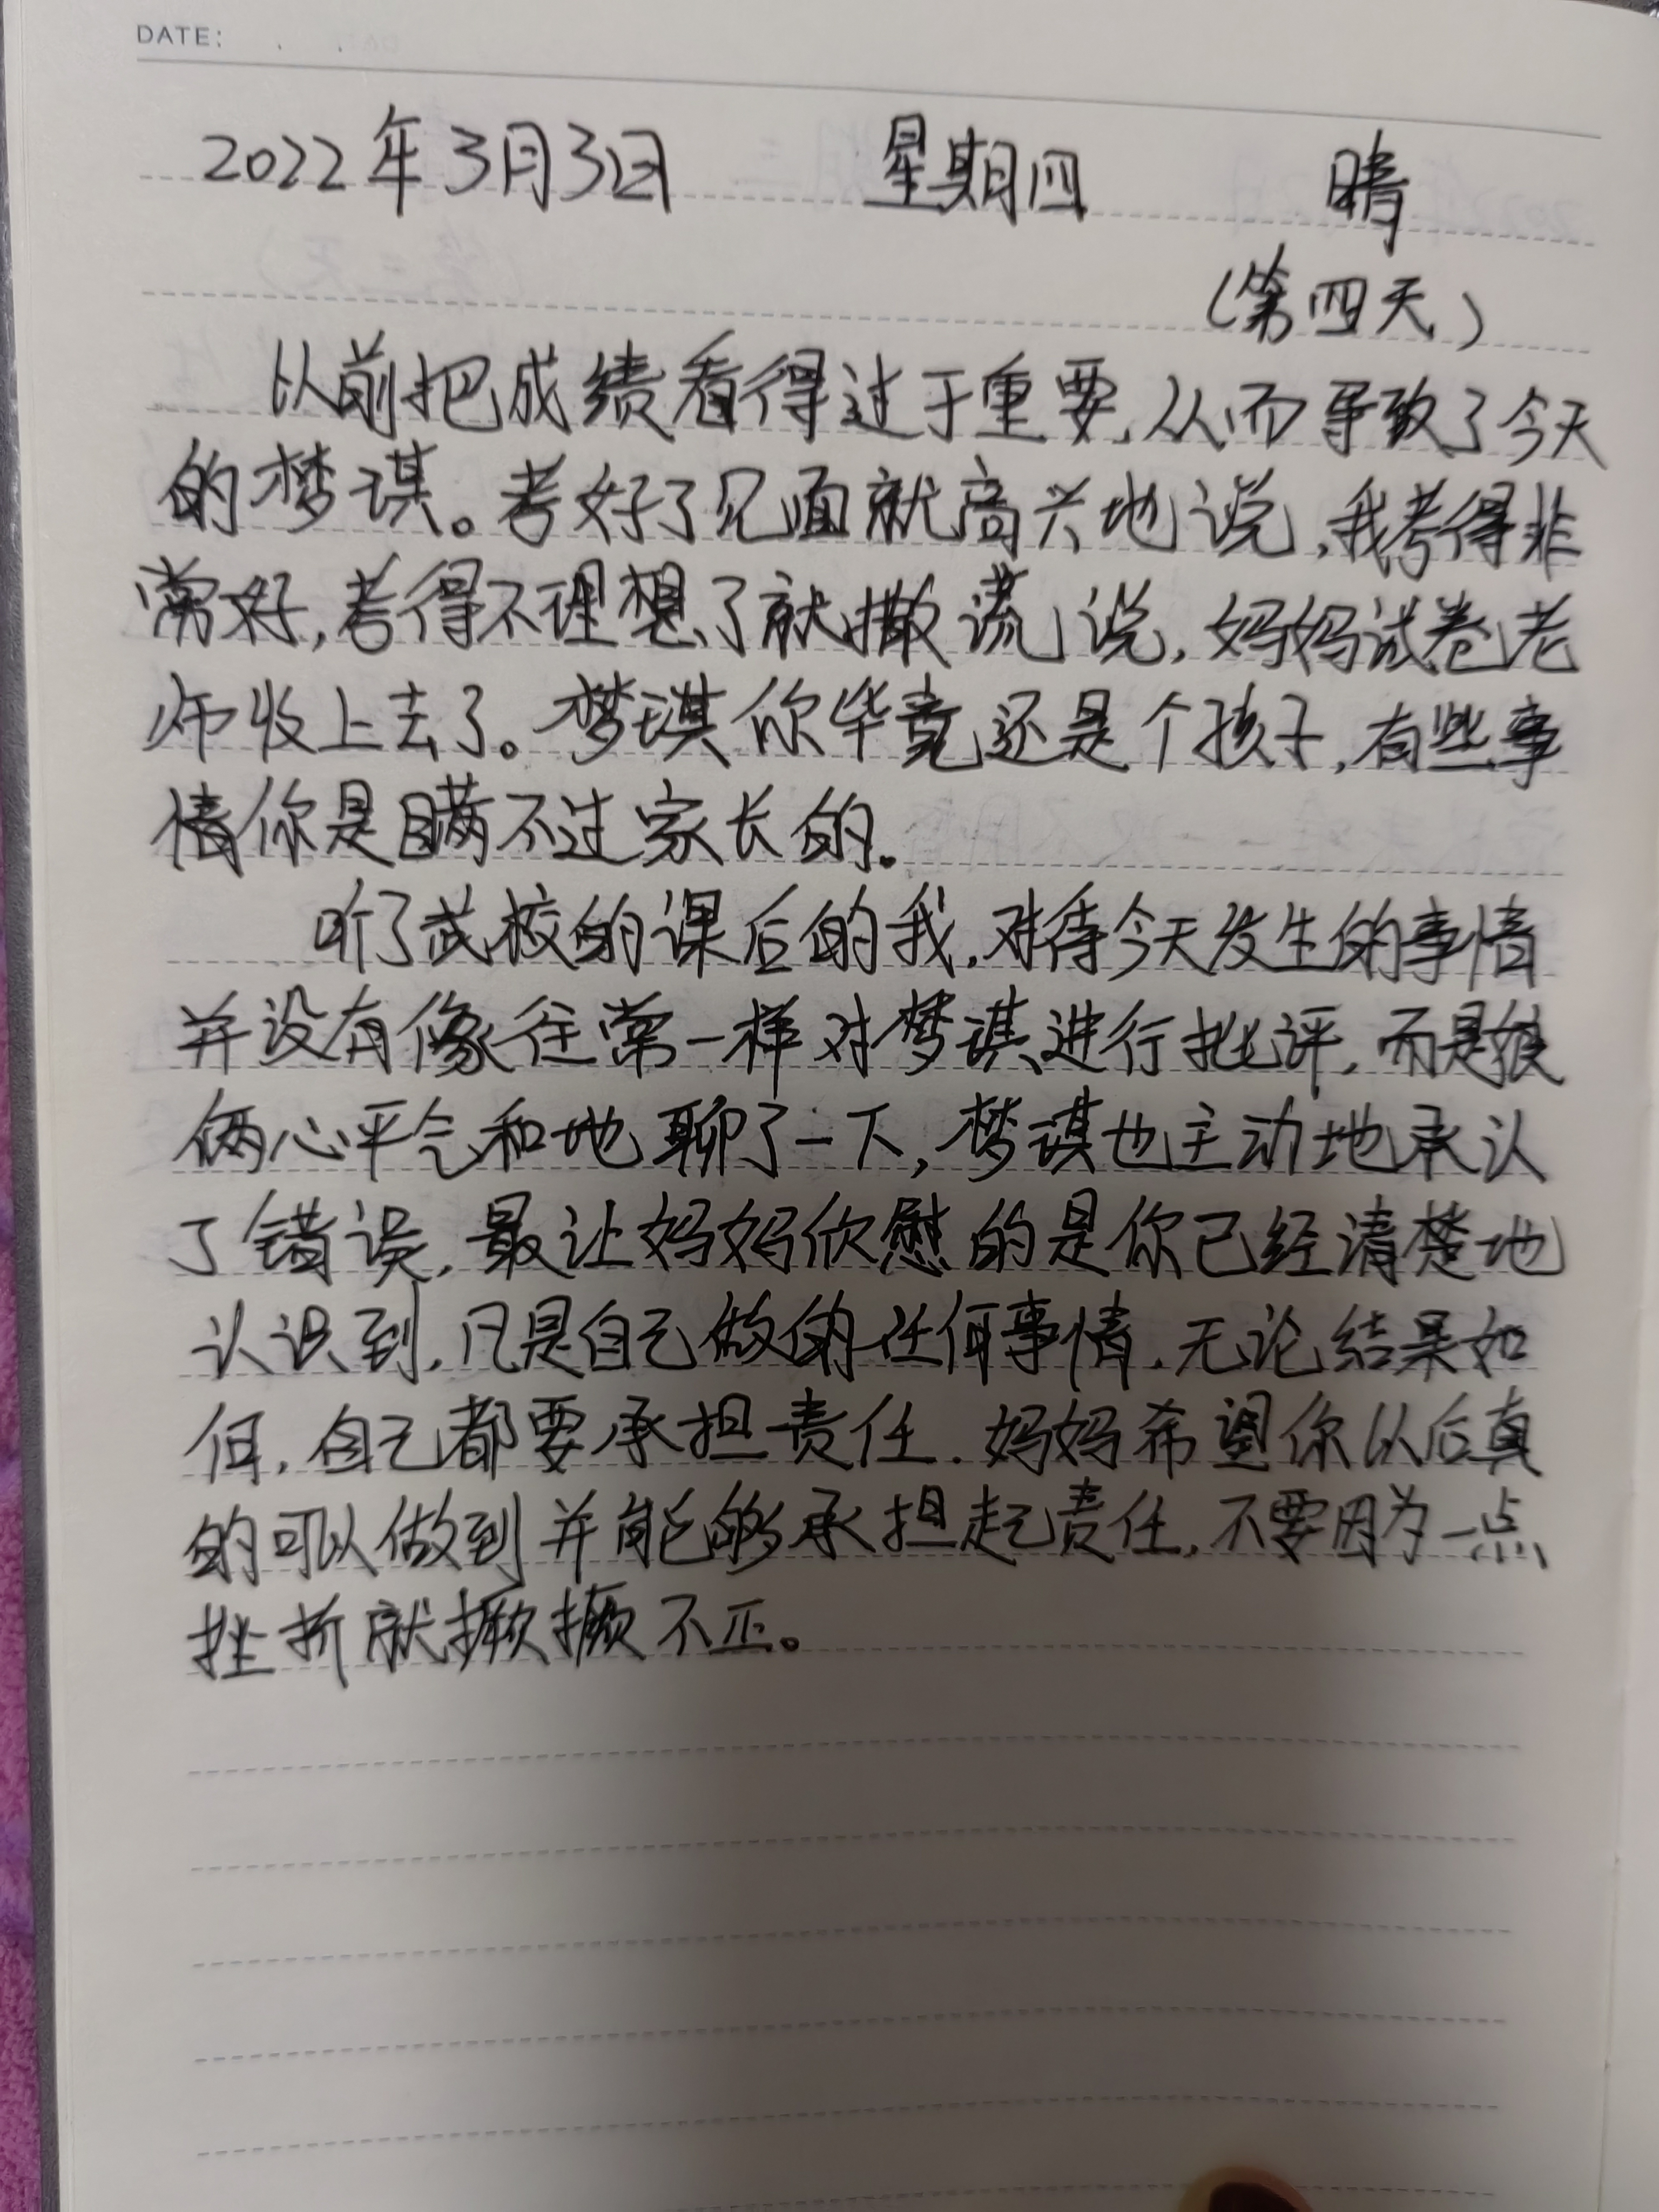 DATE:
2022年3月3日 星期四 晴
(第四天)
以前把成绩看得过于重要,从而导致了今天
的梦琪。考好了见面就高兴地说,我考得非
常好,考得不理想了就撒谎说,妈妈试卷老
师收上去了。梦琪你毕竟还是个孩子,有些事
情你是瞒不过家长的。
听了武校的课后的我,对待今天发生的事情
并没有像往常一样对梦琪进行批评,而是娘
俩心平气和地聊了一下,梦琪也主动地承认
了错误,最让妈妈欣慰的是你已经清楚地
认识到,凡是自己做的任何事情,无论结果如
何,自己都要承担责任.妈妈希望你以后真
的可以做到并能够承担起责任,不要因为一点
挫折就撅撅不正。